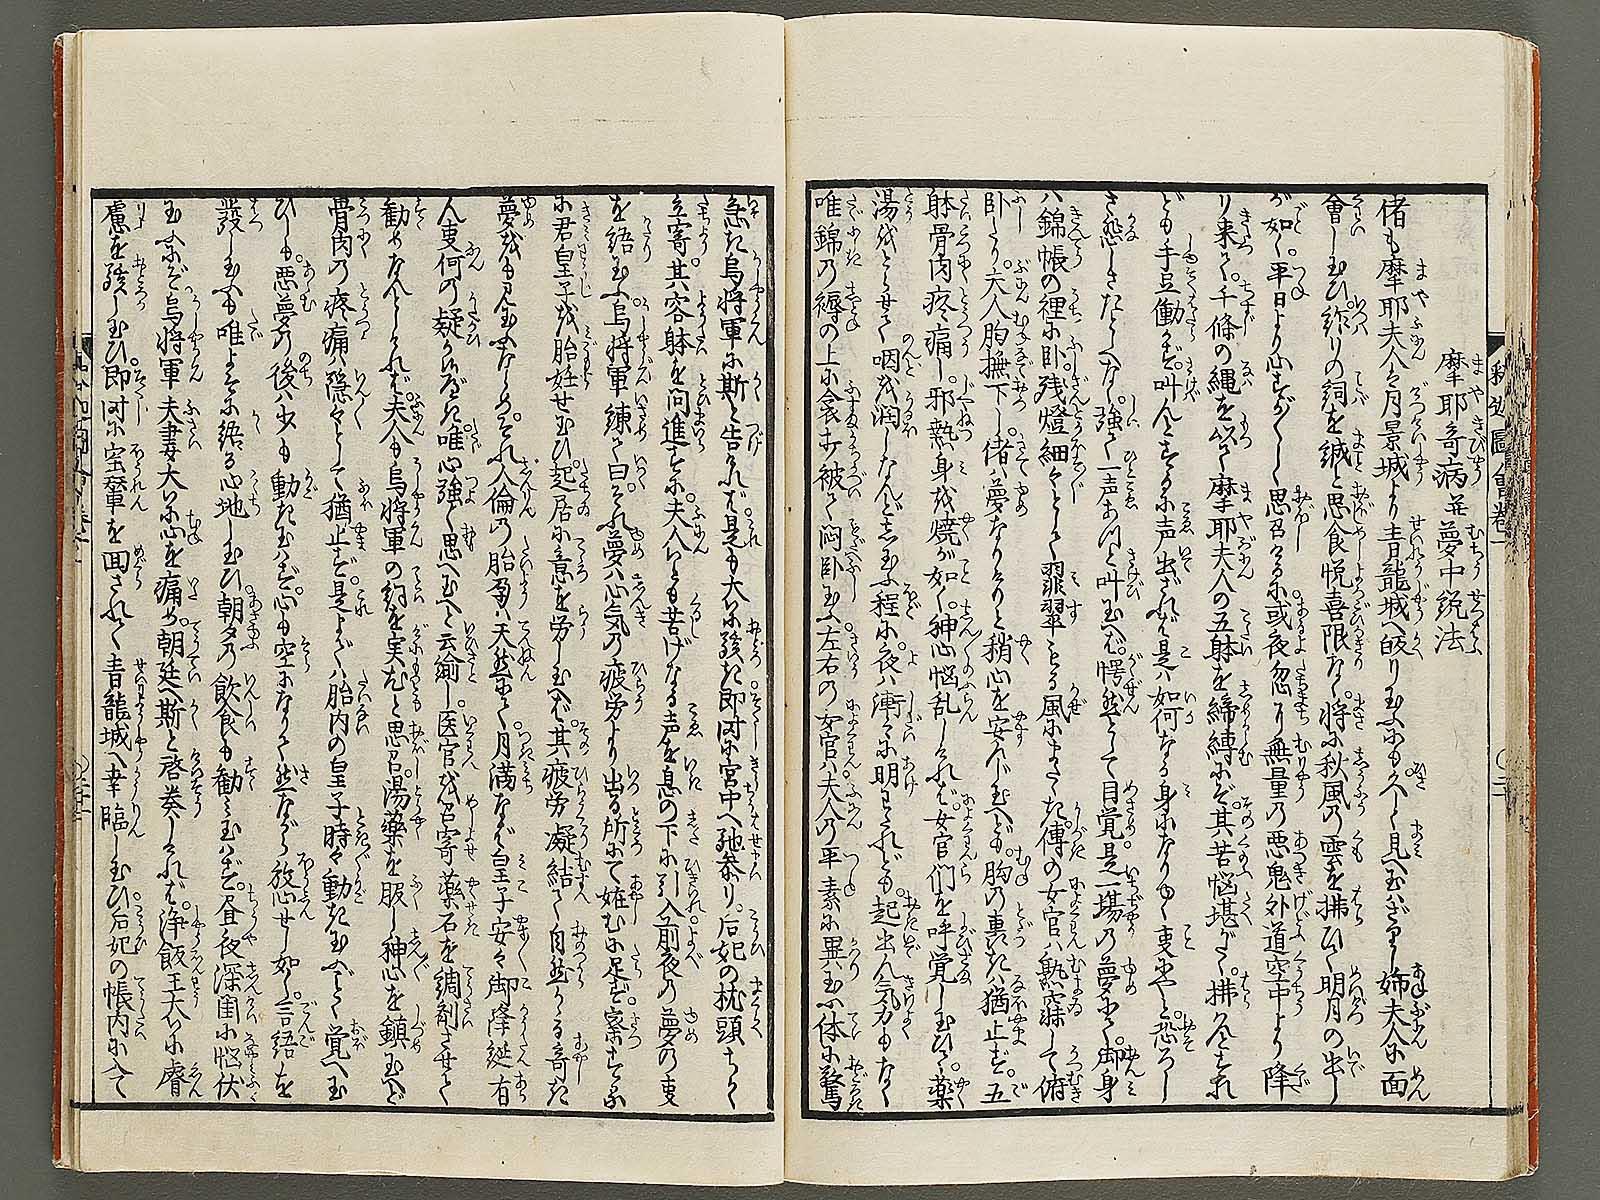 摩耶奇病並夢中説法
偖も摩耶夫人ハ月景城より青龍城へ皈り玉ふにも久しく見へ玉ハざりし姉夫人に面
會し玉ひ
詞を誠と思食悦喜限なく将に秋風の雲を拂ひて明月の出し
が如く平日より心
思召けるに或夜忽り無量の悪鬼外道空中より降
り来て千條の縄を以て摩耶夫人の五躰を締縛にぞ其苦悩堪がく拂ハんとすれ
ども手豆働かず叫んとするに声出ざれバ是ハ如何なる身になりゆく吏やと恐ろし
さ悲しさたとへなく強て一声あつと叫玉へバ愕然として目覚是一場の夢にて御身
ハ錦帳の裡に卧残燈細々として翡翠もる風にまたゝき傅の女官ハ熟寐して俯
卧たり夫人胸撫下し偖ハ夢なりけりと稍心を安んじ玉へども胸の裏だハ猶止ず五
躰骨肉疼痛し邪熱身を焼が如く神心悩乱しけれバ女官們を呼覚し玉ひて薬
湯をとらせて咽を潤しなんどし玉ふ程に夜ハ漸々に明けれども起出ん気力もなく
唯錦の褥の上に衾を被て悶卧玉ふ左右の女官ハ夫人の平素に異玉ふ体に驚
急ぎ烏将軍に斯と告けれバ是も大いに驚き即時に宮中へ馳参り后妃の枕頭ちかく
立寄其容躰を問進らするに夫人いとも苦げなる声を息の下に引入前夜の夢の吏
を語玉ふ烏将軍練て曰それ夢ハ心気の疲労より出る所にて妬むに足ず案ずるふ
に君皇子を胎妊せ玉ひ起居に意を労し玉へバ其疲労凝結て自然かゝる奇き
夢をも見玉ふならめそれ人倫の胎孕ハ天然にて月満なバ皇子安々御降誕有
ん吏何の疑かあるべき唯心強く思へ玉へと云諭し医官を召寄薬石を調剤させて
勧めなんどしけれバ夫人も烏将軍の詞を実もと思召湯薬を服し神心を鎮玉へど
骨肉の疼痛隠々として猶止ず是よりハ胎内の皇子時々動き玉へるも覚へ玉
ひしも悪夢の後ハ少も動き玉はず心も空になりて然ながら放心せし如く言語を
發し玉ふも唯よそに語る心地し玉ひ朝夕の飲食も勧み玉はず昼夜深閨に悩伏
玉ふにぞ烏将軍夫妻大いに心を痛め朝廷へ斯と啓奏しけれバ浄飯王大いに睿
慮を驚し玉ひ即時に宝輦を回されて青龍城へ幸臨し玉ひ后妃の帳内に入て